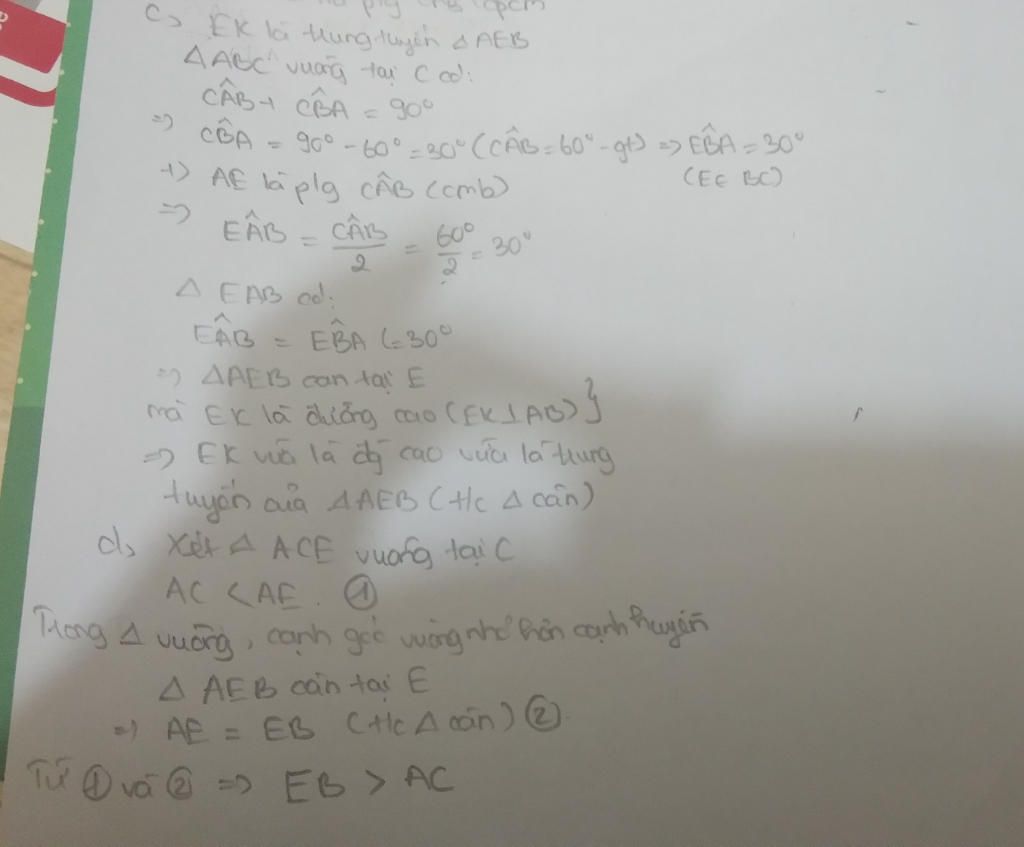 plg đpcm
c, EK là trung tuyến △ AEB
△ ABC vuông tại C có:
CÂB + CB̂A = 90°
=> CB̂A = 90° - 60° = 30° (CÂB = 60° - gt) => EB̂A = 30°
(E ∈ BC)
+) AE là plg CÂB (cmb)
=>
EÂB = CÂB/2 = 60°/2 = 30°
△ EAB có:
EÂB = EB̂A (=30°
=> △AEB can tại E
mà EK là đường cao (EK⊥AB) }
=> EK vừa là đg cao vừa là trung
tuyến của △AEB (t/c △ cân)
d, Xét △ ACE vuông tại C
AC < AE. ①
Trong △ vuông, cạnh góc vuông nhỏ hơn cạnh huyền
△ AEB cân tại E
=> AE = EB (t/c △ cân) ②.
Từ ① và ② => EB > AC